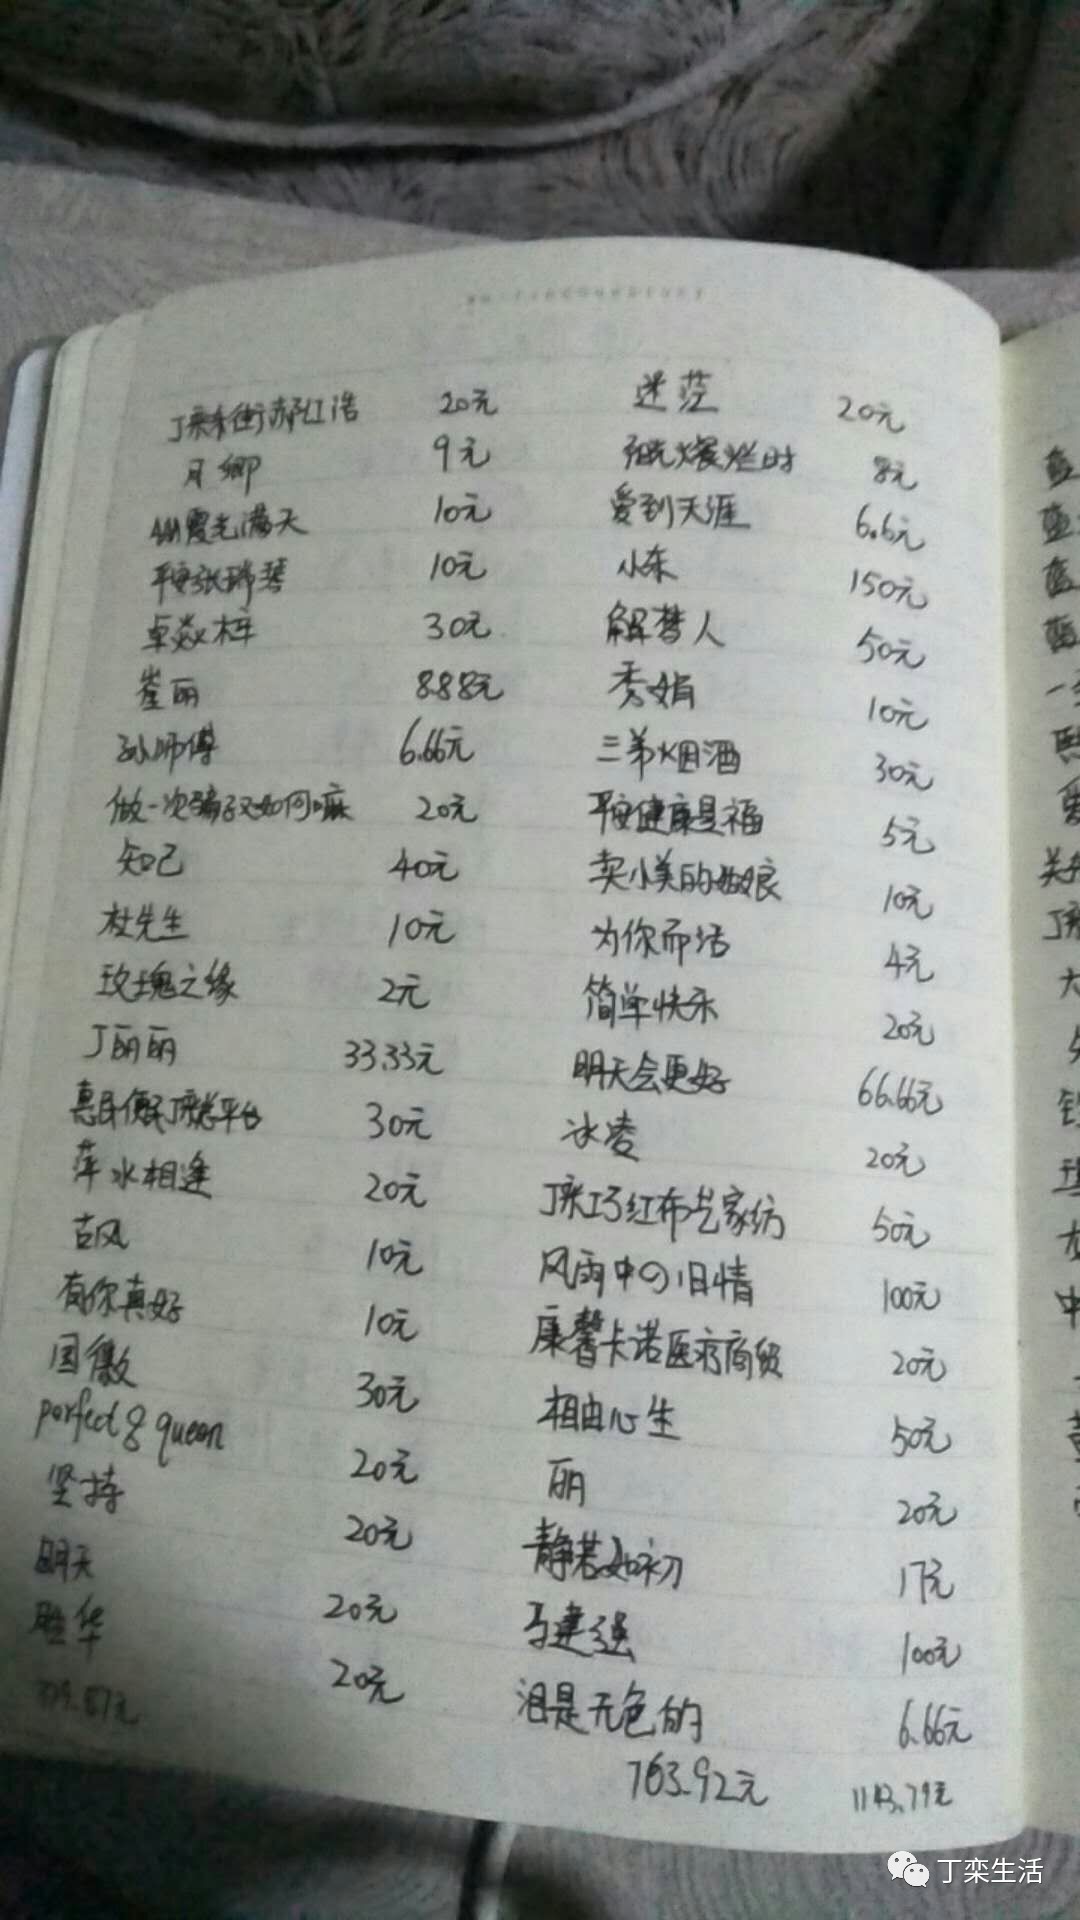 丁栾东街郝红浩 20元
月卿 9元
霞光满天 10元
平安张瑞琴 10元
卓焱梓 30元
崔丽 8.88元
孙师傅 6.66元
做一次骗子又如何嘛 20元
知己 40元
杜先生 10元
玫瑰之缘 2元
丁丽丽 33.33元
惠民便民丁栾总平台 30元
萍水相逢 20元
古风 10元
有你真好 10元
国傲 30元
perfect & queen 20元
坚持 20元
明天 20元
胜华 20元
379.87元
迷茫 20元
阳光灿烂时 8元
爱到天涯 6.6元
小东 150元
解梦人 50元
秀娟 10元
三弟烟酒 30元
平安健康是福 5元
卖小美的姑娘 10元
为你而活 4元
简单快乐 20元
明天会更好 66.66元
冰凌 20元
丁栾巧红布艺家纺 50元
风雨中の旧情 100元
康馨卡诺医疗商贸 20元
相由心生 50元
丽 20元
静若如初 17元
马建强 100元
泪是无色的 6.66元
763.92元 1143.79元
丁栾生活